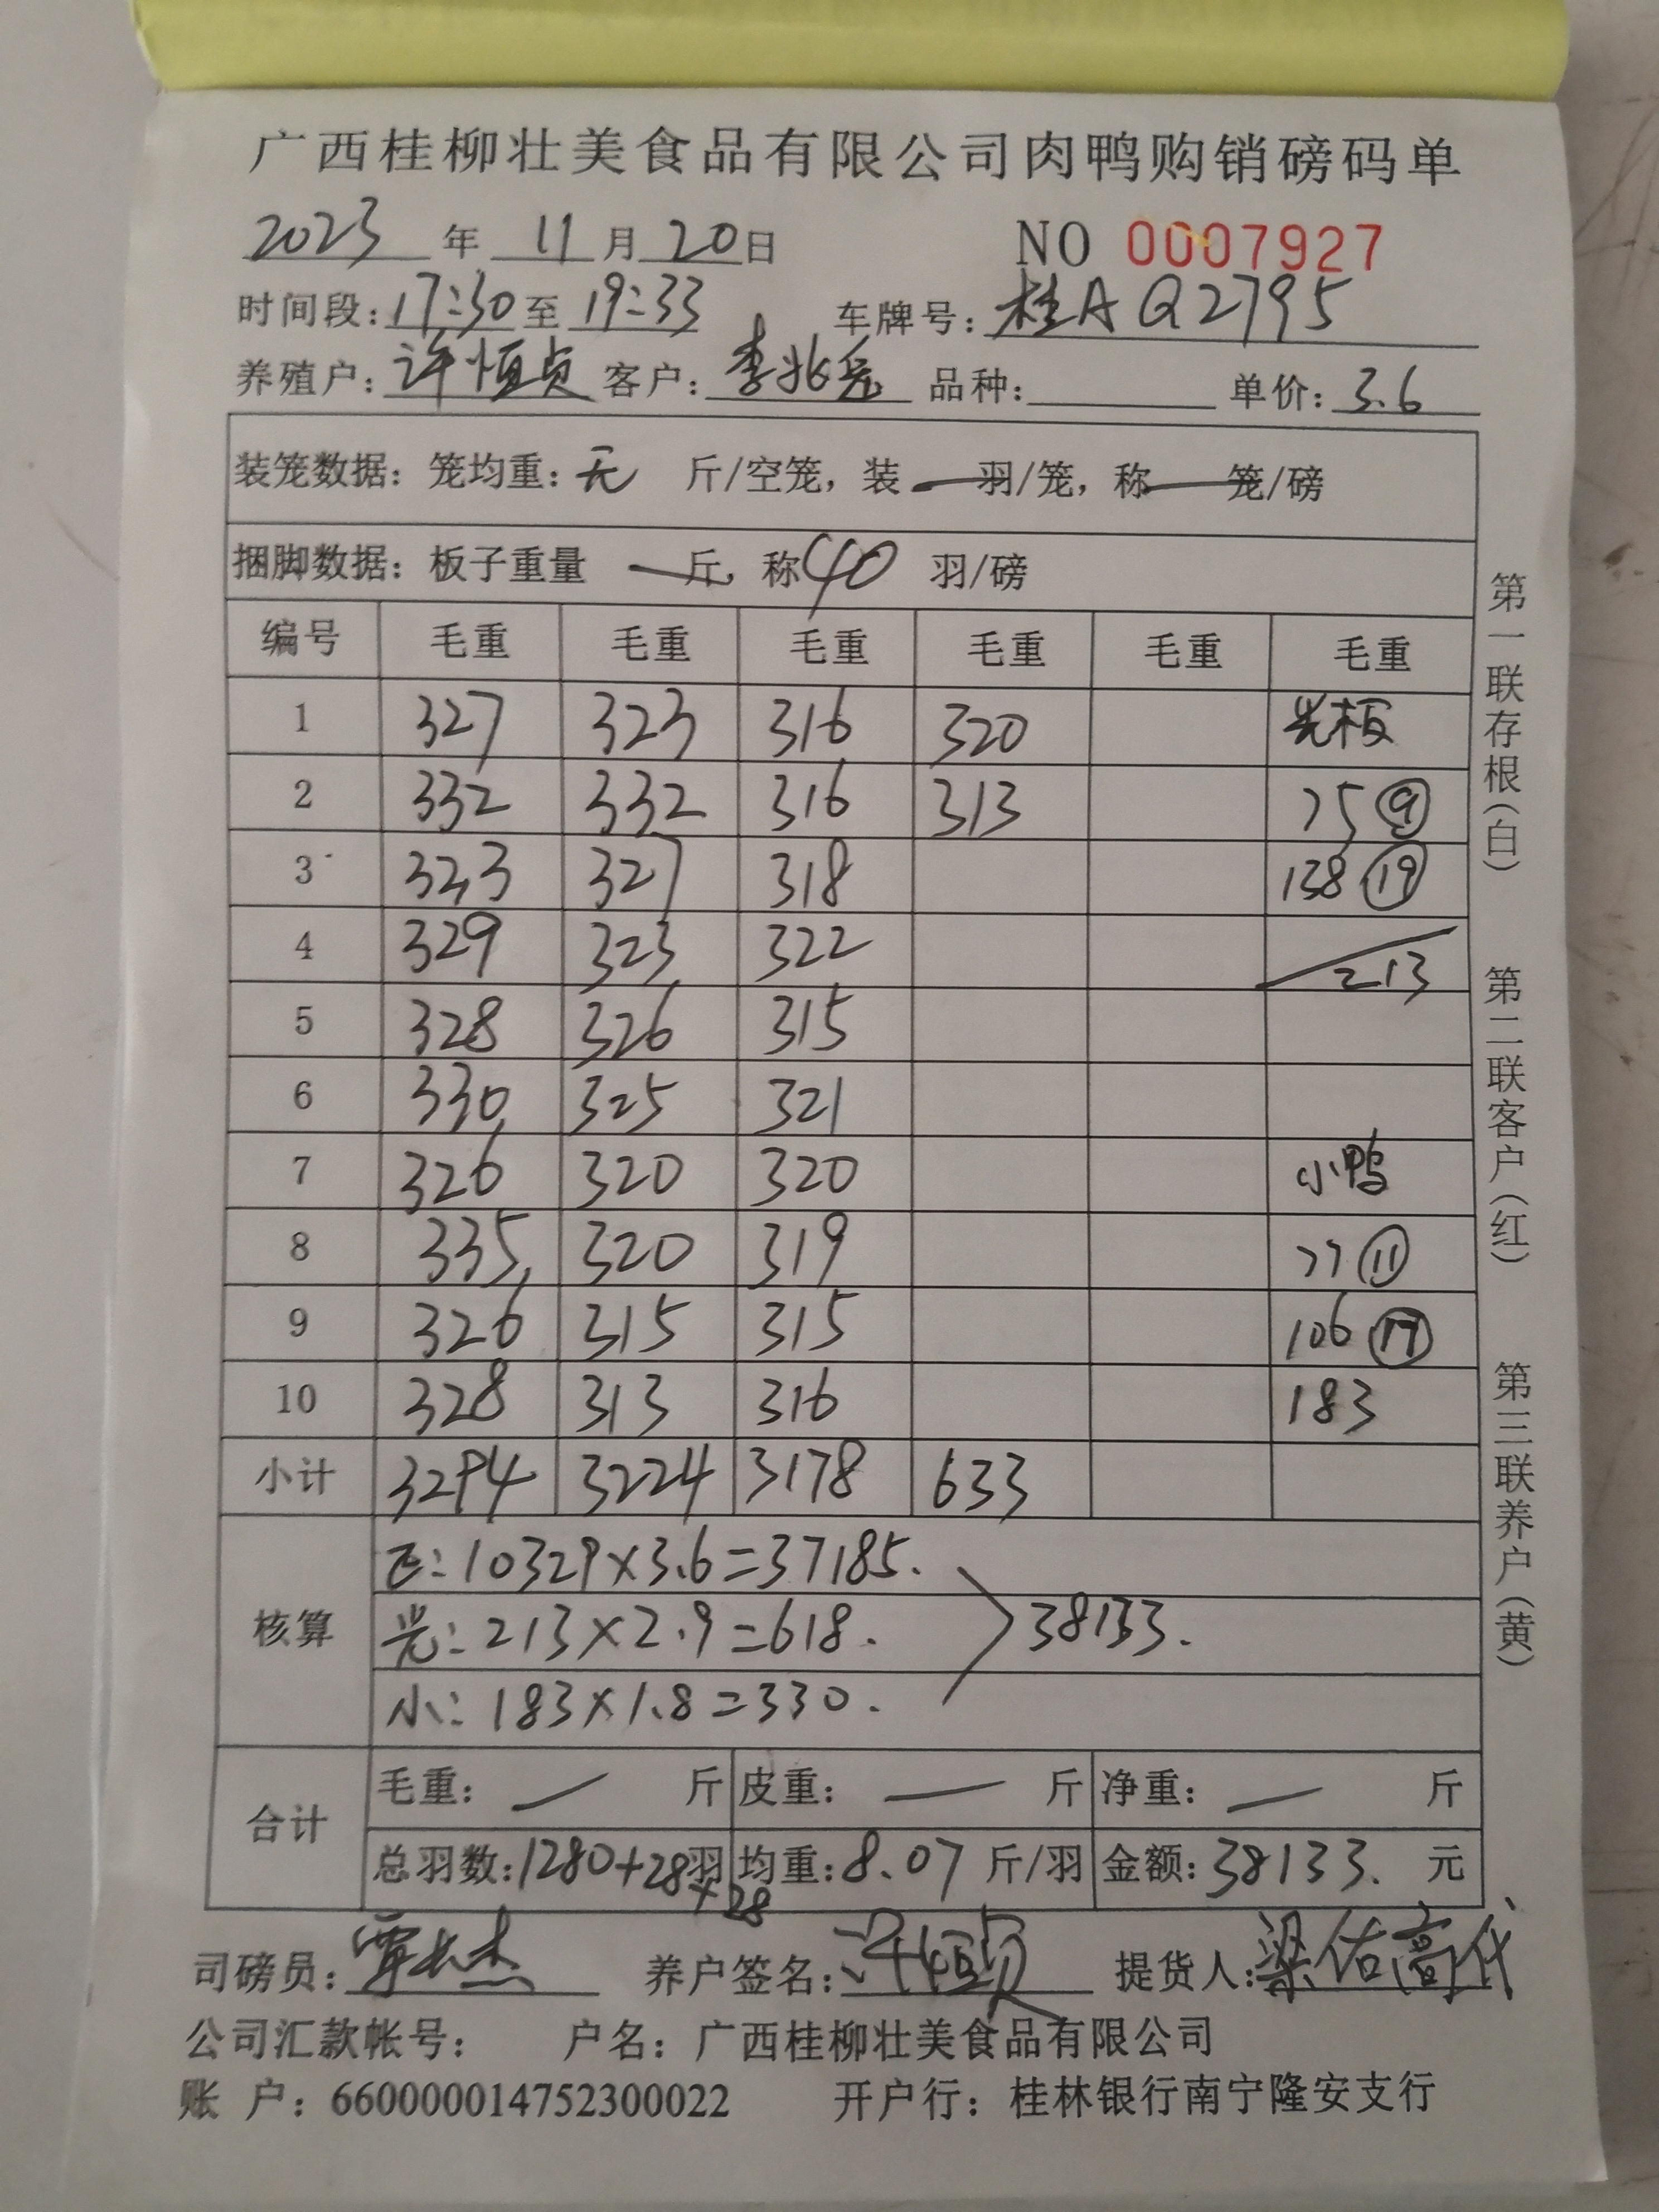 广西桂柳壮美食品有限公司肉鸭购销磅码单
2023 年 11 月 20 日 NO 0007927
时间段: 17:30 至 19:33 车牌号: 桂A Q2795
养殖户: 许恒贞 客户: 李兆亮 品种: 单价: 3.6
装笼数据: 笼均重: 无 斤/空笼, 装 — 羽/笼, 称 — 笼/磅
捆脚数据: 板子重量 — 斤, 称 40 羽/磅
编号 毛重 毛重 毛重 毛重 毛重 毛重
1 327 323 316 320 光板
2 332 332 316 313 75 ⑨
3 323 327 318 138 ⑲
4 329 323 322 213
5 328 326 315
6 330 325 321
7 326 320 320 小鸭
8 335 320 319 77 ⑪
9 326 315 315 106 ⑰
10 328 313 316 183
小计 3294 3224 3178 633
核算
正: 10329×3.6=37185.
光: 213×2.9=618.
38133.
小: 183×1.8=330.
合计
毛重: — 斤 皮重: — 斤 净重: — 斤
总羽数: 1280+28 羽 均重: 8.07 斤/羽 金额: 38133. 元
+28
司磅员: 养户签名: 许恒贞 提货人: 梁佑高代
公司汇款帐号: 户名: 广西桂柳壮美食品有限公司
账 户: 660000014752300022 开户行: 桂林银行南宁隆安支行
第一联存根(白) 第二联客户(红) 第三联养户(黄)